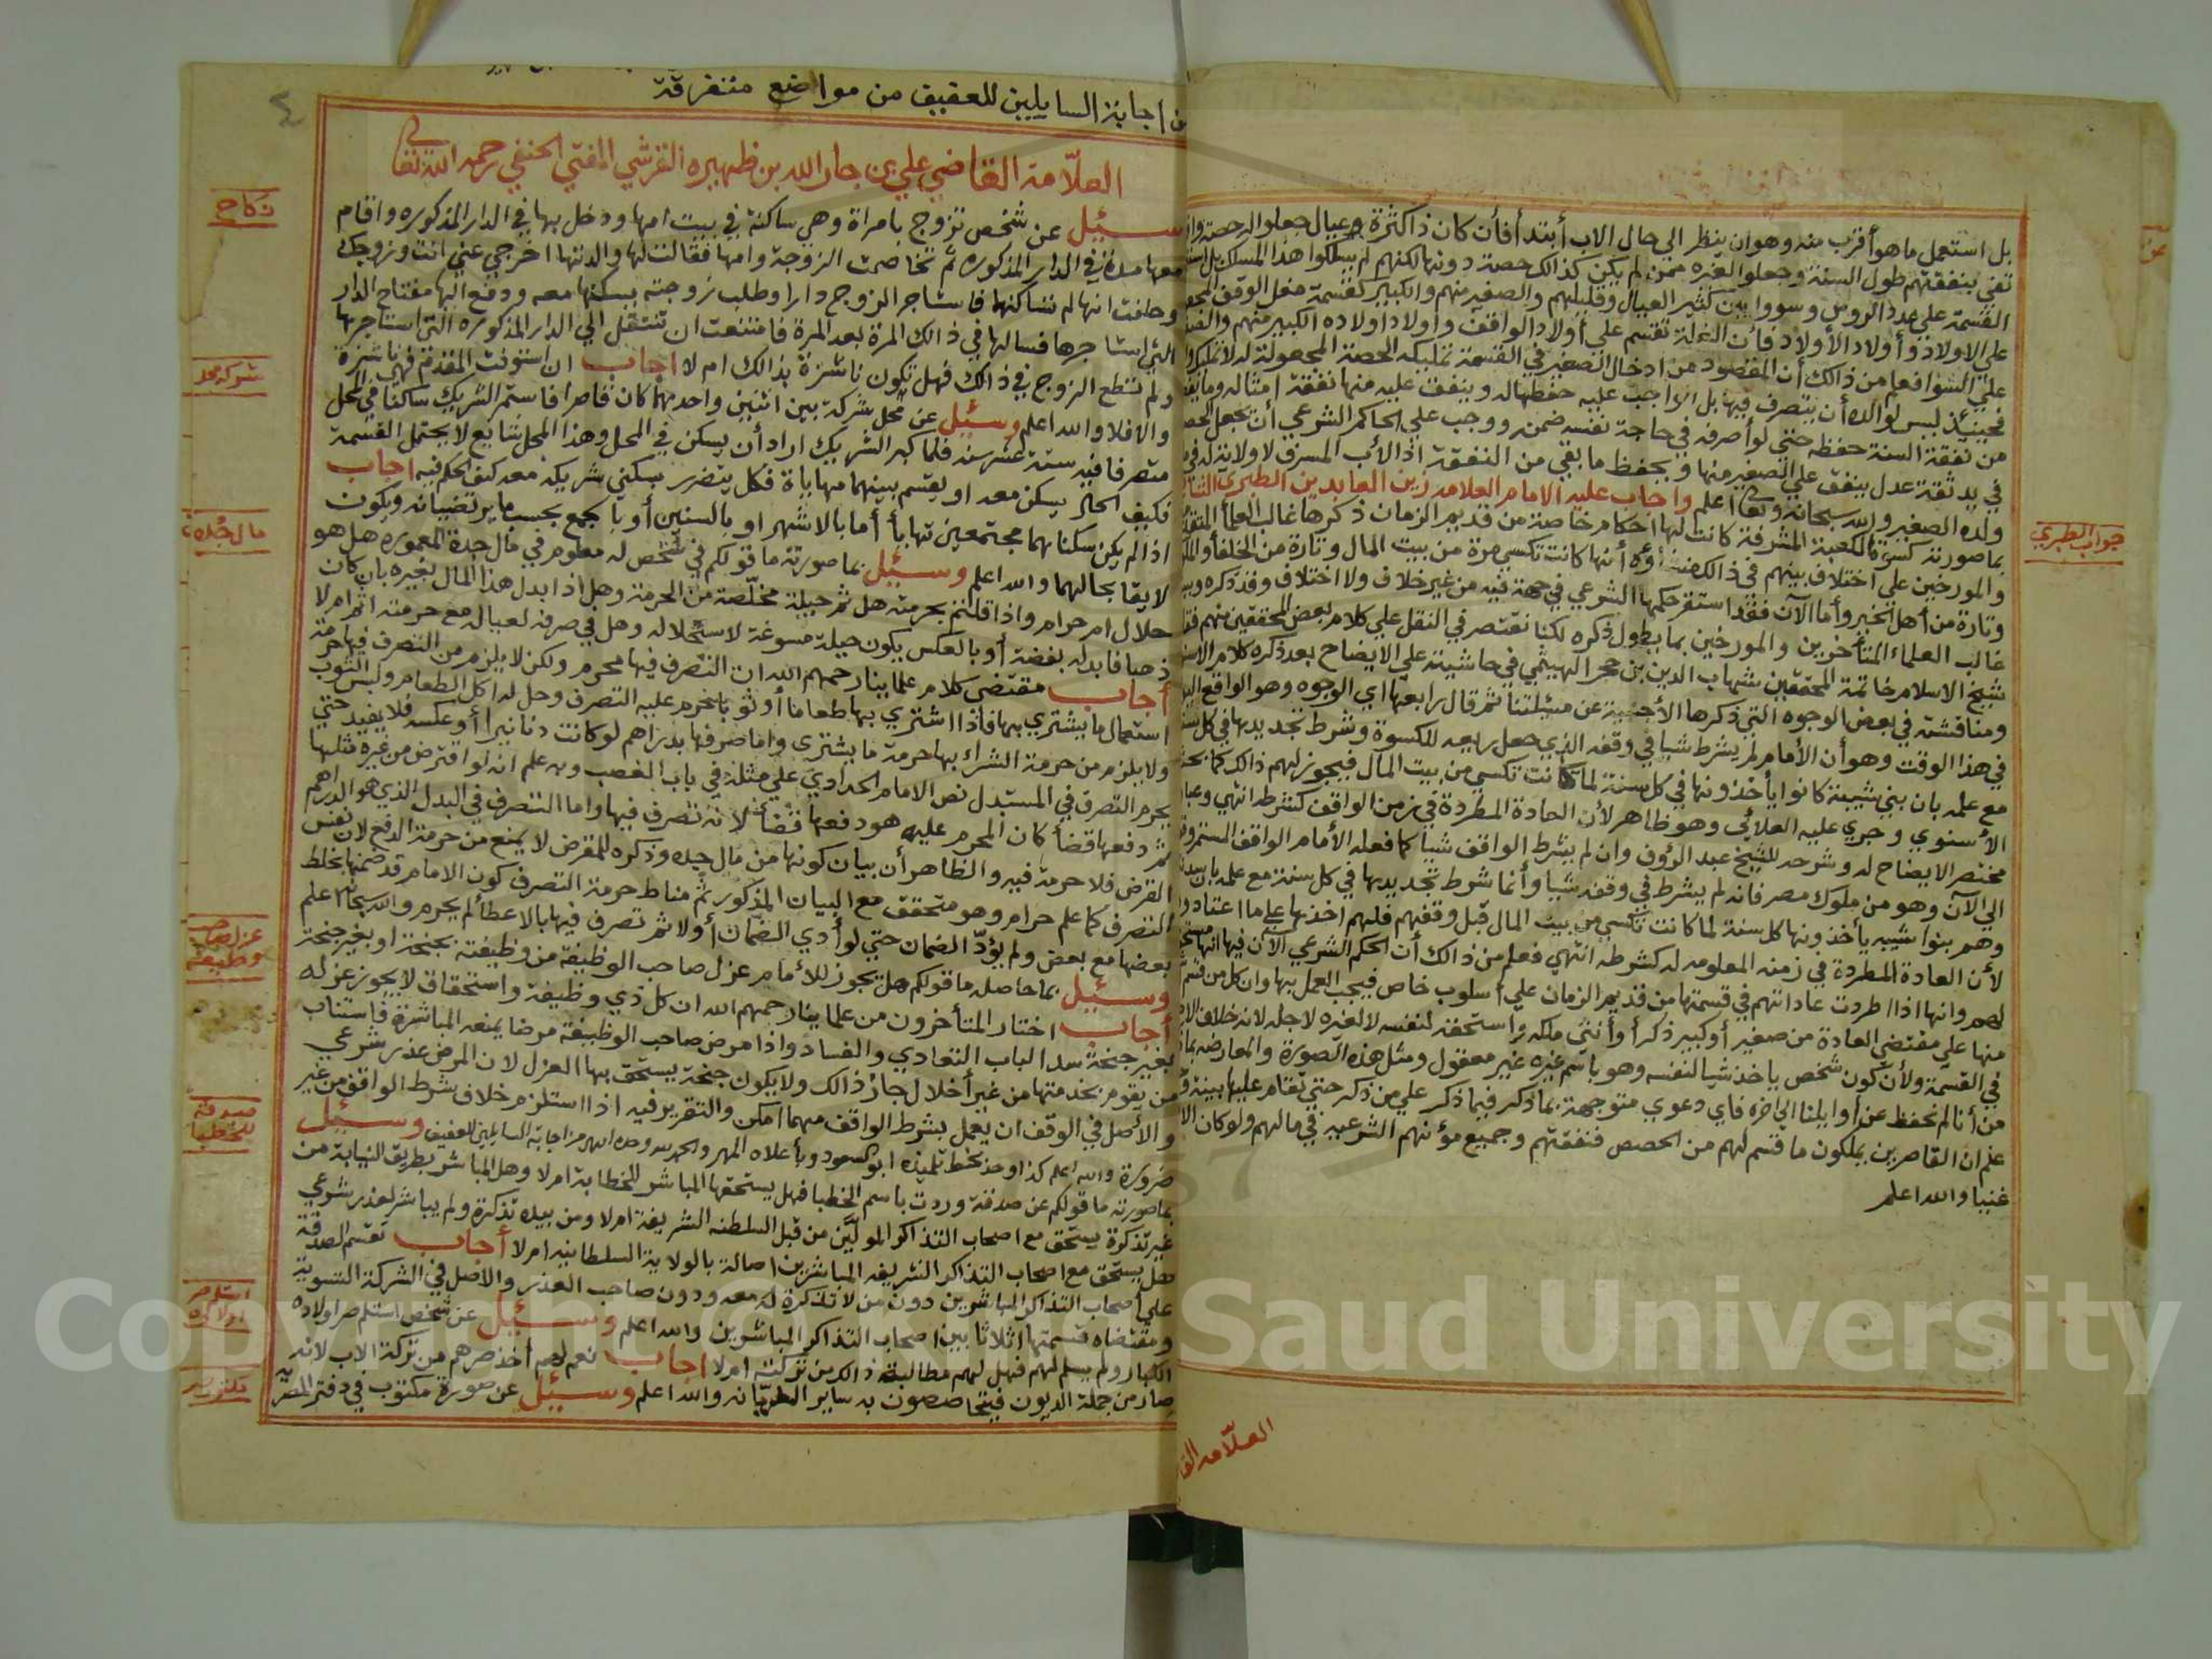 بل استعمل ما هو أقرب منه وهو ان ينظر الي حال الاب أبتدأ فأن كان ذا كثرة وعيال جعلوا له حصة
تفي بنفقتهم طول السنة وجعلوا لغيره ممن لم يكن كذالك حصة دونها لكنهم لم يسلكوا هذا المسلك بل
القسمة علي عدد الروس وسووا بين كثير العيال وقليلهم والصغير منهم والكبير كقسمة مغل الوقف
علي الاولاد وأولاد الأولاد فأن الغلة تقسم علي أولاد الواقف وأولاد اولاده الكبير منهم
علي السوا فعلم من ذالك أن المقصود من ادخال الصغير في القسمة تمليكه الحصة المجعولة له
فحينئذ ليس لوالده أن يتصرف فيها بل الواجب عليه حفظها له وينفق عليه منها نفقة امثاله
من نفقة السنة حفظه حتي لو أصرفه في حاجة نفسه ضمنه ووجب علي الحاكم الشرعي أن يجعل
في يد ثقة عدل ينفق علي الصغير منها ويحفظ ما بقي من النفقة اذ الأب المسرف لا ولاية له في
ولده الصغير والله سبحانه وتعالى اعلم واجاب عليه الامام العلامه زين العابدين الطبري
بما صورته كسوة الكعبة المشرفة كانت لها احكام خاصة من قديم الزمان ذكرها غالب العلمأ
والمورخين علي اختلاف بينهم في ذالك أنها كانت تكسي مرة من بيت المال وتارة من الخلفأ
وتارة من أهل الخير وأما الآن فقد استقر حكمها الشرعي في جهة فيه من غير خلاف ولا اختلاف وقد ذكره
غالب العلماء المتأخرين والمورخين بما يطول ذكره لكنا نقتصر في النقل علي كلام بعض المحققين منهم
شيخ الاسلام خاتمة المحققين شهاب الدين بن حجر الهيثمي في حاشيته علي الايضاح بعد ذكره كلام
ومناقشته في بعض الوجوه التي ذكرها الأجنبية عن مسئلتنا ثم قال رابعها اي الوجوه وهو الواقع
في هذا الوقت وهو أن الأمام لم يشرط شيا في وقفه الذي جعل ريعه للكسوة وشرط تجديدها في كل
مع علمه بان بني شيبة كانوا يأخذونها في كل سنة لما كانت تكسي من بيت المال فيجوز لهم ذالك كما
الأسنوي وجري عليه العلائي وهو ظاهر لأن العادة المطردة في زمن الواقف كشرطه انتهي
مختصر الايضاح له وشرحه للشيخ عبد الرؤوف وان لم يشرط الواقف شيا كما فعله الأمام الواقف
الي الآن وهو من ملوك مصر فانه لم يشرط في وقفه شيا وأنما شرط تجديدها في كل سنة مع علمه
وهم بنوا شيبه يأخذونها كل سنة لما كانت تكسي من بيت المال قبل وقفهم فلهم اخذها علي ما اعتادوا
لأن العادة المطردة في زمنه المعلومه له كشرطه انتهي فعلم من ذالك أن الحكم الشرعي الآن فيها
لهم وانها اذا اطردت عاداتهم في قسمتها من قديم الزمان علي أسلوب خاص فيجب العمل بها وان كل من
منها علي مقتضي العادة من صغير أو كبير ذكرأ وأنثي ملكه واستحقه لنفسه لا لغيره لاجله لانه خلاف
في القسمة ولأن كون شخص ياخذ شيا لنفسه وهو باسم غيره غير معقول ومثل هذه الصورة والمعارضه
من أنا لم نحفظ عن أوايلنا الي اخره فاي دعوي متوجهة بما ذكر فيما ذكر علي من ذكر حتي تقام عليها بينة
علم ان القاصرين يملكون ما قسم لهم من الحصص فنفقتهم وجميع مؤنهم الشرعيه في مالهم ولو كان
غنيا والله اعلم
جواب الطبري
العلّامه
اجابة السايلين للعقيق من مواضع متفرقة
العلّامة القاضي علي بن جار الله بن ظهيره القرشي المفتي الحنفي رحمه الله تعالى
سئيل عن شخص تزوج بامراة وهي ساكنة في بيت امها ودخل بها في الدار المذكوره واقام
معها مدة في الدار المذكوره ثم تخاصمت الزوجة وامها فقالت لها والدتها اخرجي عني انت وزوجك
وحلفت انها لم تساكنها فاستاجر الزوج دارا وطلب زوجته بسكنها معه ودفع اليها مفتاح الدار
التي استاجرها فسالها في ذالك المرة بعد المرة فامتنعت ان تنتقل الي الدار المذكوره التي استاجرها
ولم تطع الزوج في ذالك فهل تكون ناشزة بذالك ام لا اجاب ان استوفت المقدم فهي ناشزة
والا فلا والله اعلم وسئيل عن محل شركة بين اثنين واحدهما كان قاصرا فاستمر الشريك ساكنا في المحل
متصرفا فيه ستة عشر سنه فلما كبر الشريك اراد أن يسكن في المحل وهذا المحل شايع لا يحتمل القسمة
فكيف الحال يسكن معه او يقسم بينهما مهاياة فكل يتضرر بسكني شريكه معه كيف الحكم فيه اجاب
اذا لم يكن سكناهما مجتمعين تهايأ أما بالاشهر او بالسنين أو بالجمع بحسب ما يرتضيانه ويكون
لايقا بحالهما والله اعلم وسئيل بما صورته ما قولكم في شخص له معلوم في مال جدة المعموره هل هو
حلال ام حرام واذا قلتم بحرمته هل ثم حيلة مخلّصة من الحرمة وهل اذا ابدل هذا المال بغيره بان كان
ذهبا فابدله بفضة أو بالعكس يكون حيلة مسوغة لاستحلاله وهل في صرفه لعياله مع حرمته اثم ام لا
أجاب مقتضي كلام علماينا رحمهم الله ان التصرف فيها محرم ولكن لا يلزم من التصرف فيها حرمة
استعمال ما يشتري بها فاذا اشتري بها طعاما أو ثوبا يحرم عليه التصرف وحل له اكل الطعام ولبس الثوب
ولا يلزم من حرمة الشراء بها حرمة ما يشتري واما صرفها بدراهم لو كانت دنانيرا أو عكسه فلا يفيد حتي
يحرم التصرف في المستبدل نص الامام الحدادي علي مثله في باب الغصب وبه علم انه لو اقترض من غيره مثلها
ثم دفعها قضأ كان المحرم عليه هو دفعها قضأ لانه تصرف فيها واما التصرف في البدل الذي هو الدراهم
القرض فلا حرمة فيه والظاهر أن بيان كونها من مال جده وذكره للمقرض لا يمنع من حرمة الدفع لان نفس
التصرف كما علم حرام وهو متحقق مع البيان المذكور ثم مناط حرمة التصرف كون الامام قد ضمنها بخلط
بعضها مع بعض ولم يؤدّ الضمان حتي لو أدي الضمان أولا ثم تصرف فيها بالاعطأ لم يحرم والله سبحانه اعلم
وسئيل بما حاصله ما قولكم هل يجوز للأمام عزل صاحب الوظيفة من وظيفته بجنحة او بغير جنحة
أجاب اختار المتأخرون من علماينا رحمهم الله ان كل ذي وظيفة واستحقاق لا يجوز عزله
بغير جنحة سدا لباب التعادي والفساد واذا مرض صاحب الوظيفة مرضا يمنعه المباشرة فاستناب
من يقوم بخدمتها من غير أخلال جاز ذالك ولا يكون جنحة يستحق بها العزل لان المرض عذر شرعي
والأصل في الوقف ان يعمل بشرط الواقف مهما امكن والتقرير فيه اذا استلزم خلاف شرط الواقف من غير
ضرورة والله اعلم كذا وجد بخط تلميذه ابو السعود وبأعلاه المهر والحمد لله وحده انتهي من اجابة السايلين للعقيق وسئيل
بما صورته ما قولكم عن صدقة وردت باسم الخطبا فهل يستحقها المباشر للخطابة ام لا وهل المباشر بطريق النيابة من
غير تذكرة يستحق مع اصحاب التذاكر المولّين من قبل السلطنه الشريفة ام لا ومن بيده تذكرة ولم يباشر لعذر شرعي
هل يستحق مع اصحاب التذاكر الشريفه المباشرين اصالة بالولاية السلطانيه ام لا أجاب تقسم الصدقة
علي أصحاب التذاكر المباشرين دون من لا تذكرة له معه ودون صاحب العذر والأصل في الشركة التسوية
ومقتضاه قسمتها اثلاثا بين اصحاب التذاكر المباشرين والله اعلم وسئيل عن شخص استلم صر اولاده
الكبار ولم يسلم لهم فهل لهم مطالبة ذالك من تركته ام لا اجاب نعم لهم أخذ صرهم من تركة الاب لانه
صار من جملة الديون فيتحاصصون به ساير الغرمأ والله اعلم وسئيل عن صورة مكتوب في دفتر الصر
نكاح
شركة محل
مال جده
عزل صاحب
وظيفة
صدقة
للخطبا
استلم صر
اولاده
Copyright © King Saud University